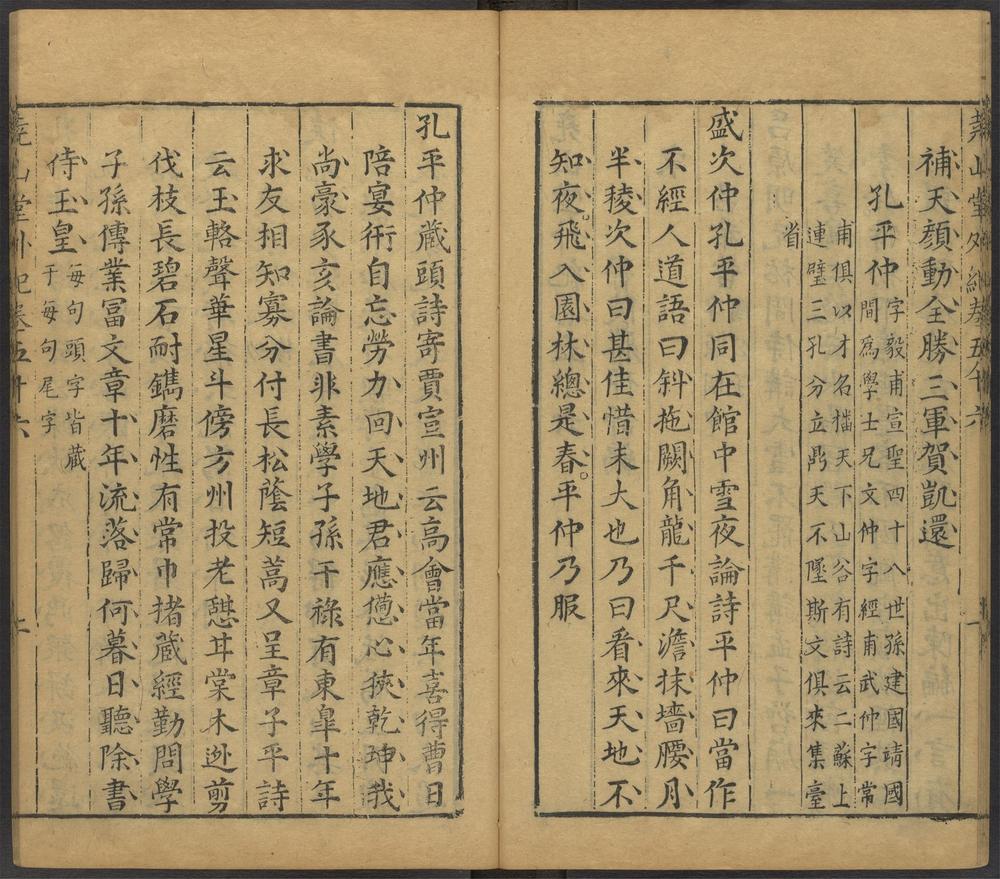 堯山堂外紀卷五十六
補天顏動全勝三軍賀凱還
孔平仲
字毅甫宣聖四十八世孫建國靖國
間爲學士兄文仲字經甫武仲字常
甫俱以才名檑天下山谷有詩云二蘇上
連璧三孔分立鼎天不墜斯文俱來集臺
省
盛次仲孔平仲同在館中雪夜論詩平仲曰當作
不經人道語曰斜拖闕角龍千尺澹抹墻腰月
半稜次仲曰甚佳惜未大也乃曰看來天地不
知夜飛入園林總是春平仲乃服
孔平仲藏頭詩寄賈宣州云高會當年喜得曹日
陪宴衎自忘勞力回天地君應憊心狹乾坤我
尚豪豕亥論書非素學子孫干祿有東皐十年
求友相知寡分付長松蔭短蒿又呈章子平詩
云玉輅聲華星斗傍方州投老憇甘棠木迯剪
伐枝長碧石耐鐫磨性有常巾措藏經勤問學
子孫傳業冨文章十年流落歸何暮日聽除書
侍玉皇
每句頭字皆藏
于每句尾字
堯山堂外紀卷五十六